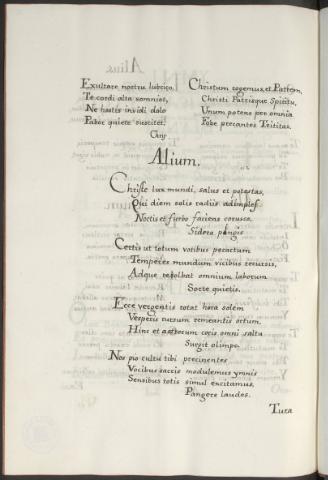 Exultare nostru lubrico,
Te cordi alta somniet,
Ne hostis invidi dolo
Pavor quiete suscitet.
Christum rogemus et Patrem,
Christi Patrisque Spiritu,
Unum potens per omnia
Fove precantes Trinitas.
Alium.
Christe lux mundi, salus et potestas,
Qui diem solis radiis adimples
Noctis et furvo faciens corusca
Sidera pingis
Certis ut totum vocibus peractum
Temperes mundum vicibus reversis,
Adque resolbat omnium laborum
Sorte quietis.
Ecce vergentis totat hora solem
Vesperis cursum remeantis ortum,
Hinc et astrorum coris omni salta
Surgit olimpo.
Nos pio cultu tibi precinentes
Vocibus sacris modulemus ymnis
Sensibus totis simul excitamus,
Pangere laudes.
Tura